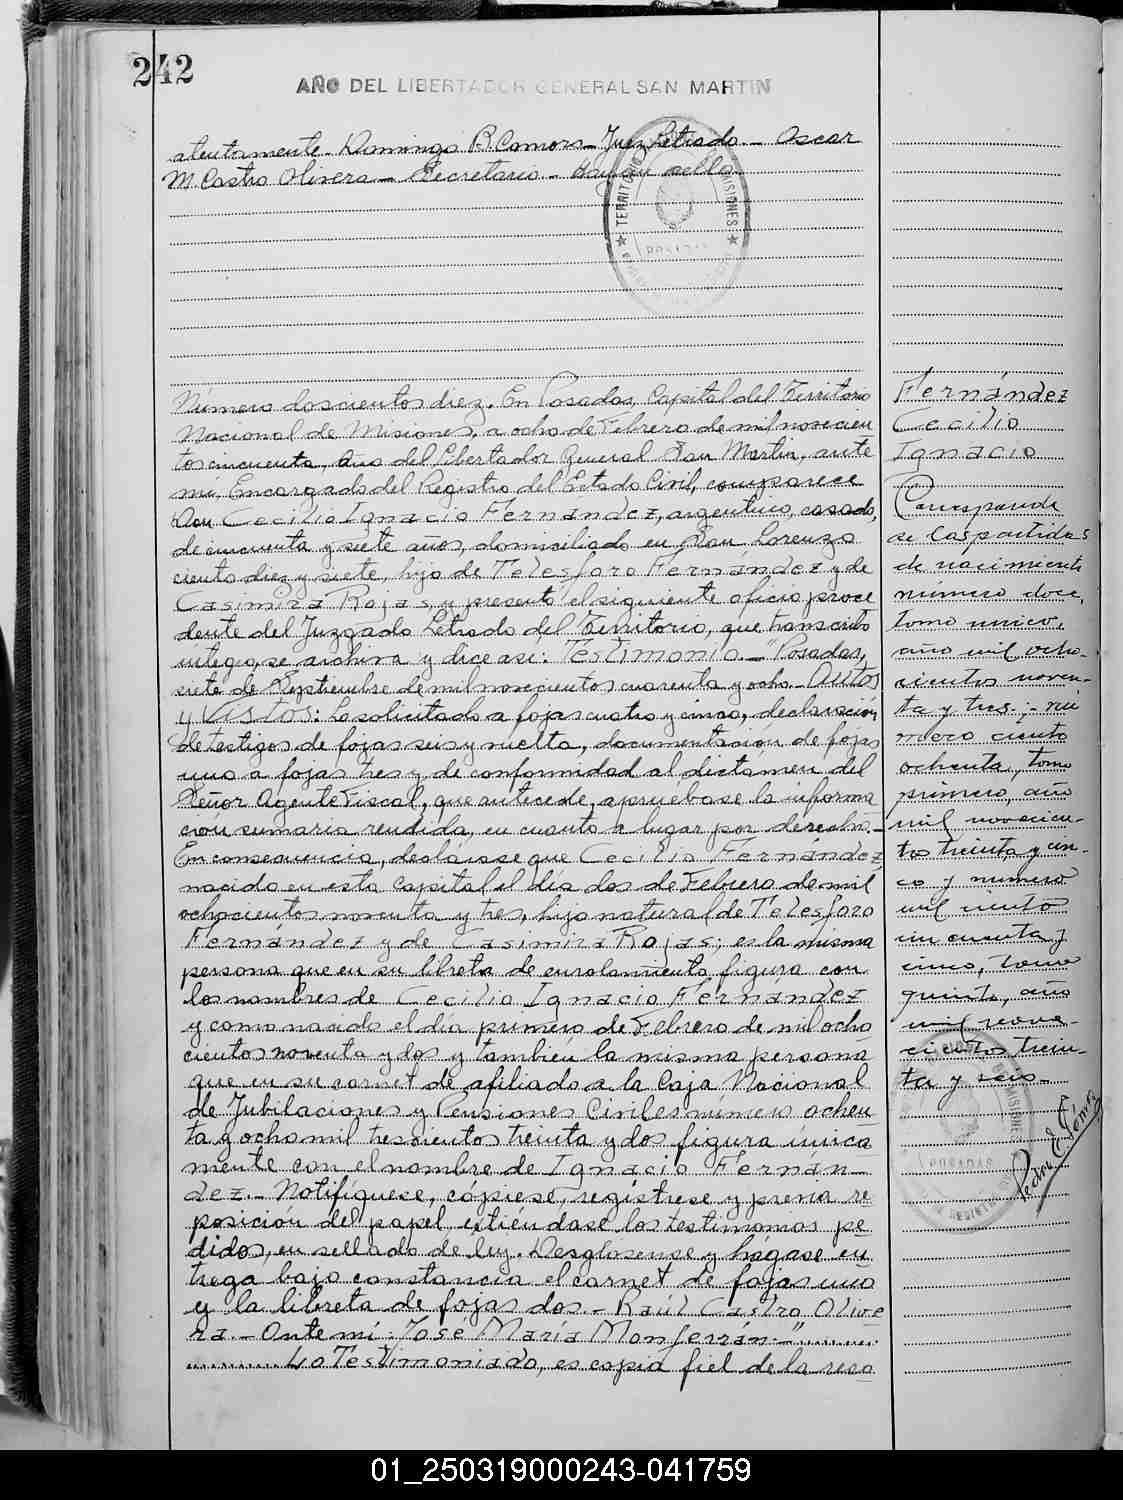 242
AÑO DEL LIBERTADOR GENERAL SAN MARTIN
atentamente. Domingo R. Camors - Juez Letrado - Oscar
M. Castro Olivera - Secretario - Hay un sello -
TERRITORIO MISIONES
POSADAS
Número doscientos diez. En Posadas, Capital del Territorio
Nacional de Misiones, a ocho de Febrero de mil novecien
tos cincuenta, Año del Libertador General San Martín, ante
mi, Encargado del Registro del Estado Civil, comparece
Don Cecilio Ignacio Fernández, argentino, casado,
de cincuenta y siete años, domiciliado en San Lorenzo
ciento diez y siete, hijo de Telesforo Fernández y de
Casimira Rojas, y presentó el siguiente oficio proce
dente del Juzgado Letrado del Territorio, que transcribo
íntegro, se archiva y dice asi: Testimonio. - "Posadas,
siete de Septiembre de mil novecientos cuarenta y ocho. - Autos
y Vistos: Lo solicitado a fojas cuatro y cinco, declaración
de testigos de fojas seis y vuelta, documentación de fojas
una a fojas tres y de conformidad al dictamen del
Señor Agente Fiscal, que antecede, apruébase la informa
ción sumaria rendida, en cuanto a lugar por derecho. -
En consecuencia, declárase que Cecilio Fernández,
nacido en esta Capital el día dos de Febrero de mil
ochocientos noventa y tres, hijo natural de Telesforo
Fernández y de Casimira Rojas; es la misma
persona que en su libreta de enrolamiento figura con
los nombres de Cecilio Ignacio Fernández
y como nacido el día primero de Febrero de mil ocho
cientos noventa y dos y también la misma persona
que en su carnet de afiliado a la Caja Nacional
de Jubilaciones y Pensiones Civiles número ochen
ta y ocho mil trescientos treinta y dos figura única
mente con el nombre de Ignacio Fernán-
dez. - Notifíquese, cópiese, regístrese y previa re
posición del papel extiéndase los testimonios pe
didos, en sellado de ley. Desglósense y hágase en
trega bajo constancia el carnet de fojas uno
y la libreta de fojas dos. - Raúl Castro Olive
ra. - Ante mi: José María Monferrán. - "
Lo Testimoniado, es copia fiel de la reso
Fernández
Cecilio
Ignacio
Corresponde
se las partidas
de nacimiento
número doce,
tomo unico,
año mil ocho-
cientos noven-
ta y tres; - nú
mero ciento
ochenta, tomo
primero, año
mil novecien-
tos treinta y cin-
co y número
mil ciento
cincuenta y
cinco, tomo
quinto, año
mil nove-
cientos trein-
ta y seis -
POSADAS
Pedro E. Gómez
01_250319000243-041759